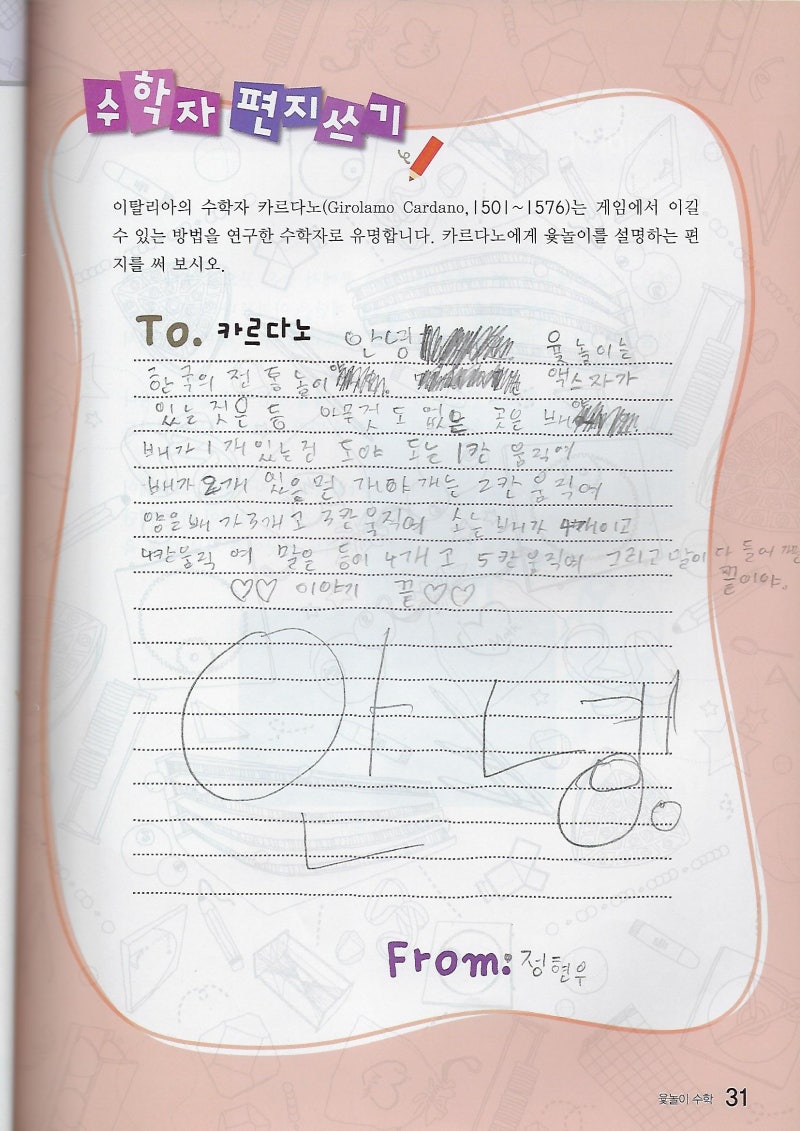 수학자 편지쓰기
이탈리아의 수학자 카르다노(Girolamo Cardano,1501~1576)는 게임에서 이길
수 있는 방법을 연구한 수학자로 유명합니다. 카르다노에게 윷놀이를 설명하는 편
지를 써 보시오.
To. 카르다노 안녕 윷놀이는
한국의 전통놀이야 액스자가
있는 젓은 등 아무것도 없는 곳은 배야
배가 1개있는건 도야 도는 1칸 움직여
배가 2개 있으면 개야 개는 2칸 움직여
양은배가3개고 3칸움직여 소는 배가 4개이고
4칸움직여 말은 등이 4개고 5칸움직여 그리고 말이 다 들어
끝이야.
♡♡ 이야기 끝♡♡
안녕.
From: 정현우
윷놀이 수학 31